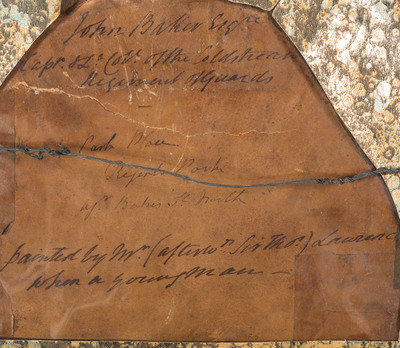 John Baker Esqre
Capt. & Lt. Col. of the Coldstream
Regiment of Guards
Park Place
Regents Park
Baker St. North
painted by Mr. (afterws. Sir Thos.) Lawrence
when a young man —